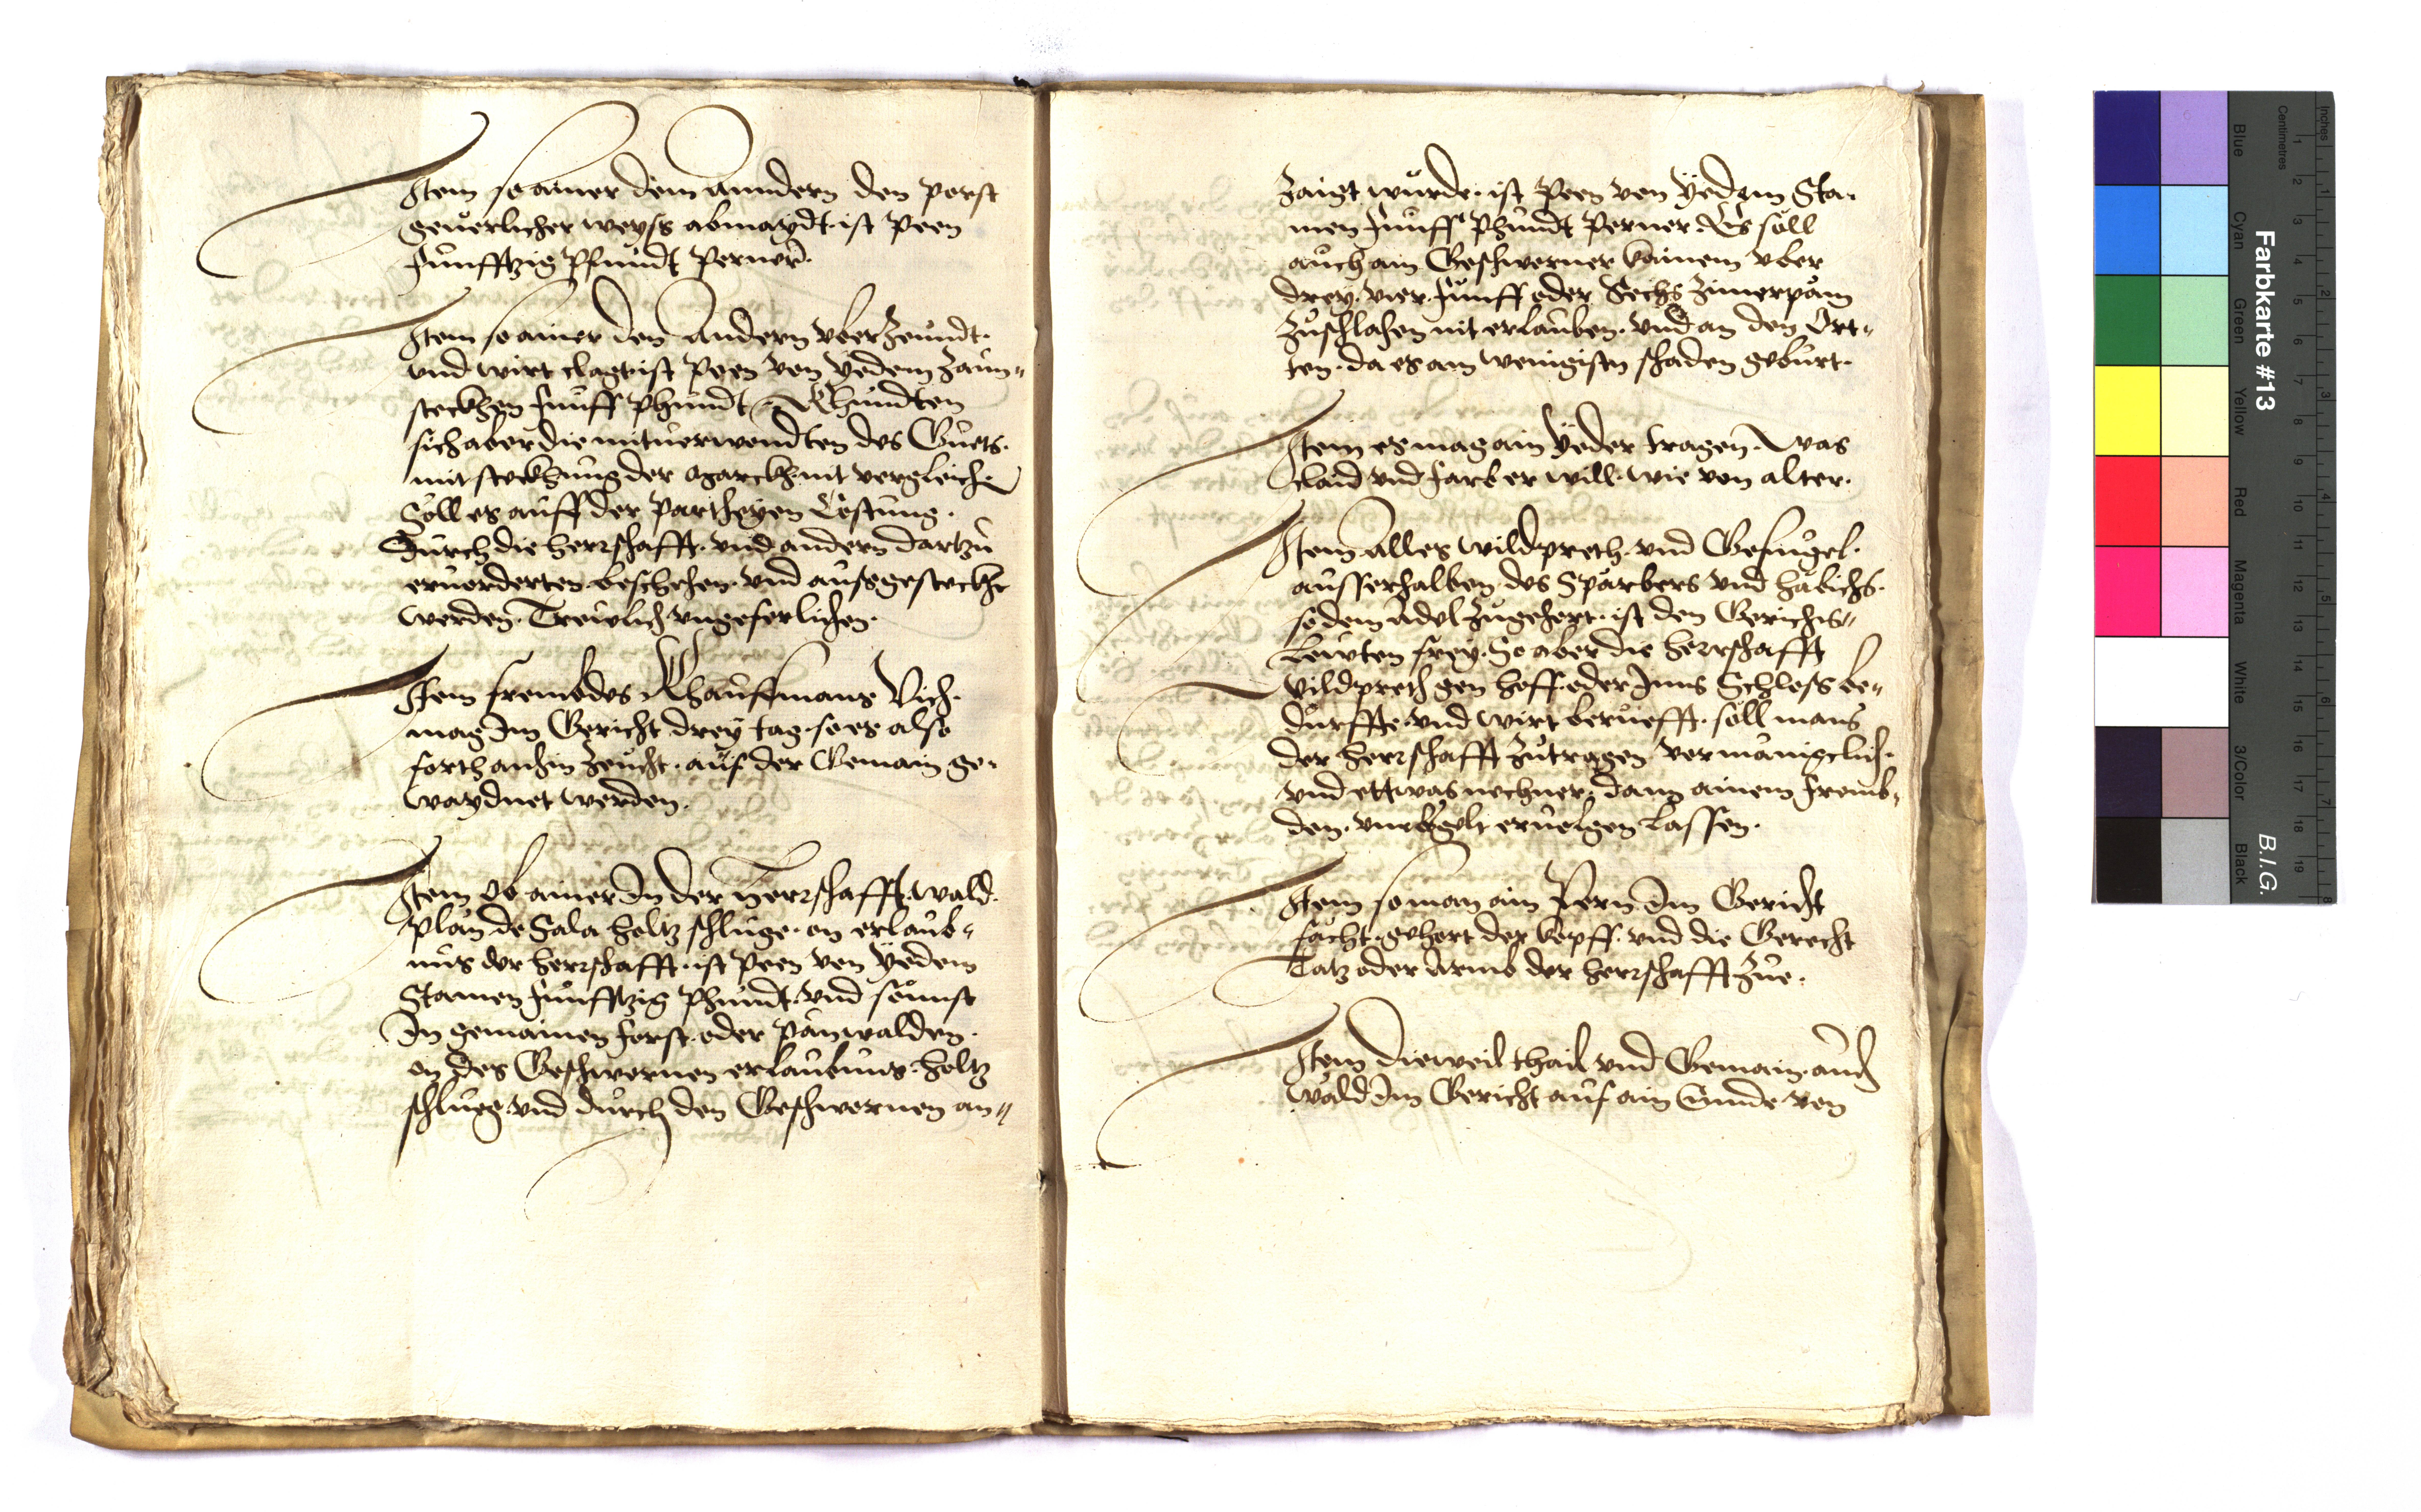 Item so ainer dem anndern den porst
geuerlicher weyss abmaydt. ist Peen
funfftzig Pfundt Perner.
Item so ainer den Andern vber zeundt.
vnd wirt clagt ist Peen von yedem Zaun„
steckhen funff Phundt. Khundten
sich aber die mituerwondten des Guets.
mit steckhung der ogarckh nit vergleichen
Soll es auff der partheyen Costung.
Durch die herrschafft. vnd andern dartzu
eruorderten beschehen. vnd aufsgesteckht
werden. Trewlich vngeferlichen.
Item frembdes Khauffmans Vich.
mag Im Gericht drey tag. so es also
forth anhin zeucht. auf der Gemain ge„
waydnet werden.
Item Ob ainer In der Herrschafft. wald.
plan de Sala holtz schluge. on erlaub„
nus der herrschafft. ist Peen von yedem
Stamen funfftzig Phundt. vnd sounst
In gemainen forst. oder panwalden.
on des Geschwornen erlaubnus. holtz
schlueg. vnd durch den Geschwornen an„
zaigt wurde. ist Peen von yedem Sta„
men funff Phundt Perner. Es soll
auch ain Geschworner kainem vber
drey. vier. funff oder Sechs zimerpam
zuschlahen nit erlauben. vnd an den Ort„
ten. da es am wenigisten schaden geburt.
Item es mag ain yeder tragen. was
claid vnd farb er will. wie von alter.
Item Alles wildpreth. vnd Gefugel.
ausserhalben. des Sparbers vnd habichs.
so dem Adel zugehort. ist den Gerichts„
Lewten frey. So aber die herrschafft
Wildpreth gen hoff. oder Inns Schloss be„
durffte. vnd wirt beruefft. soll mans
der herrschafft zutragen vor manigclich.
vnd ettwas nechner. dann ainem fremb„
den. vmb gelt eruolgen lassen.
Item so man ain Pern Im Gericht
facht. gehort der kopff. vnd die Gerecht
Tatz oder Armb der herrschafft Zue.
Item Dieweil thail vnd Gemain. auch
wald Im Gericht auf ain Stunde von